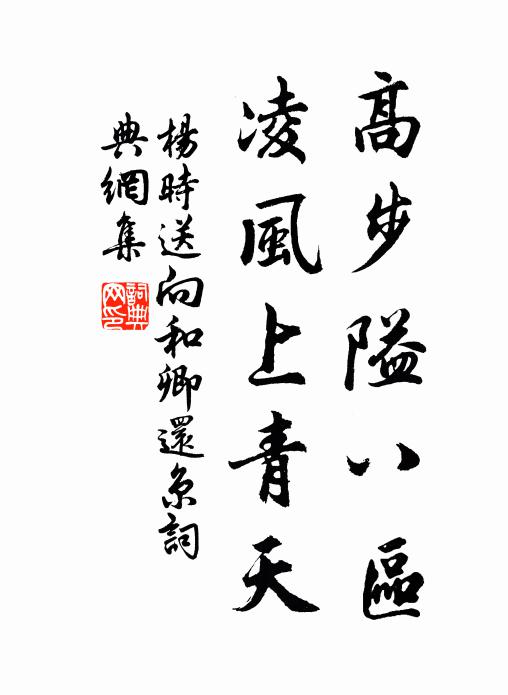 高步隘八區
凌風上青天
楊時送向和卿還京詞
典網集
詞典
網印